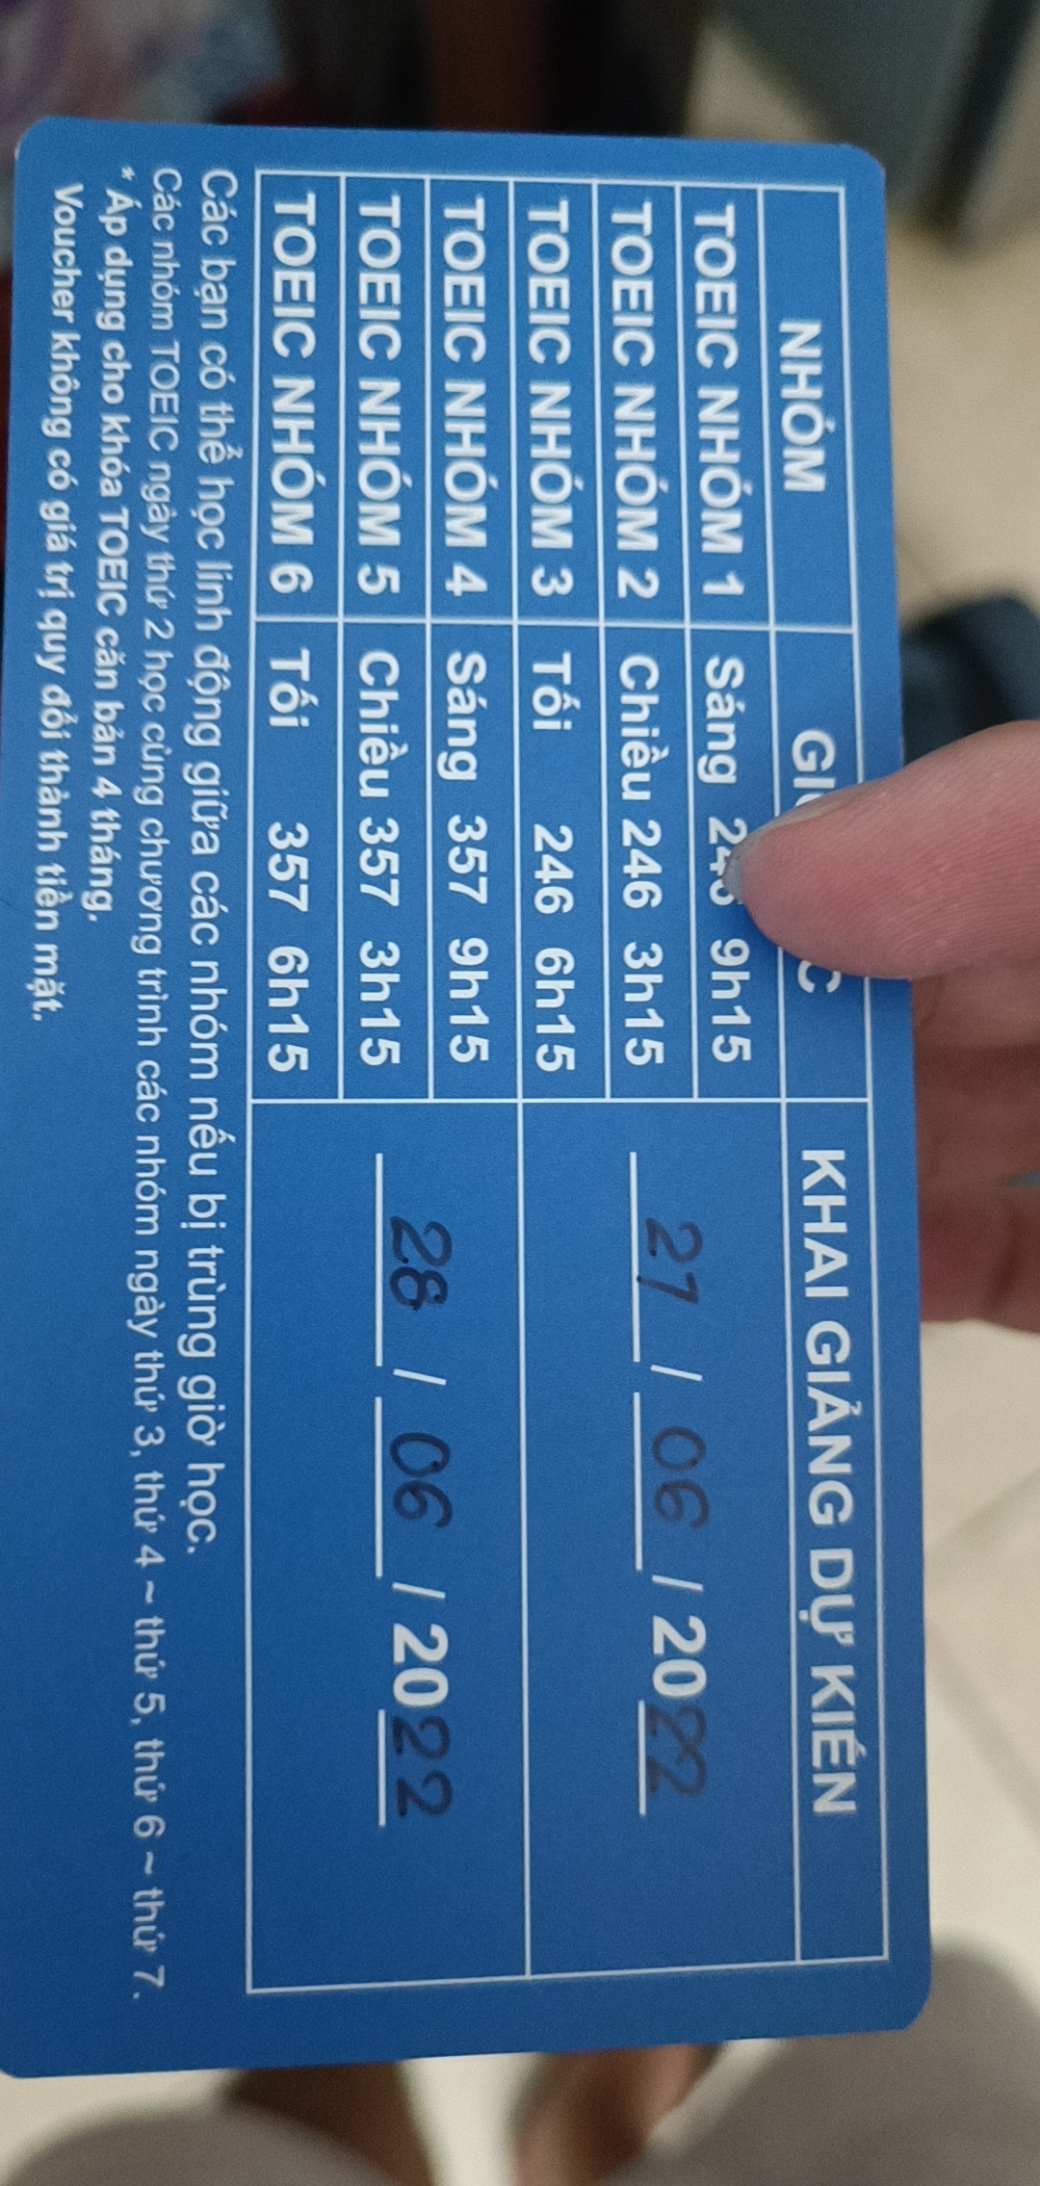 NHÓM KHAI GIẢNG DỰ KIẾN
TOEIC NHÓM 1 Sáng 9h15
TOEIC NHÓM 2 Chiều 246 3h15
27 / 06 / 2022
TOEIC NHÓM 3 Tối 246 6h15
TOEIC NHÓM 4 Sáng 357 9h15
TOEIC NHÓM 5 Chiều 357 3h15
28 / 06 / 2022
TOEIC NHÓM 6 Tối 357 6h15
Các bạn có thể học linh động giữa các nhóm nếu bị trùng giờ học.
Các nhóm TOEIC ngày thứ 2 học cùng chương trình các nhóm ngày thứ 3, thứ 4 ~ thứ 5, thứ 6 ~ thứ 7.
* Áp dụng cho khóa TOEIC căn bản 4 tháng.
Voucher không có giá trị quy đổi thành tiền mặt.